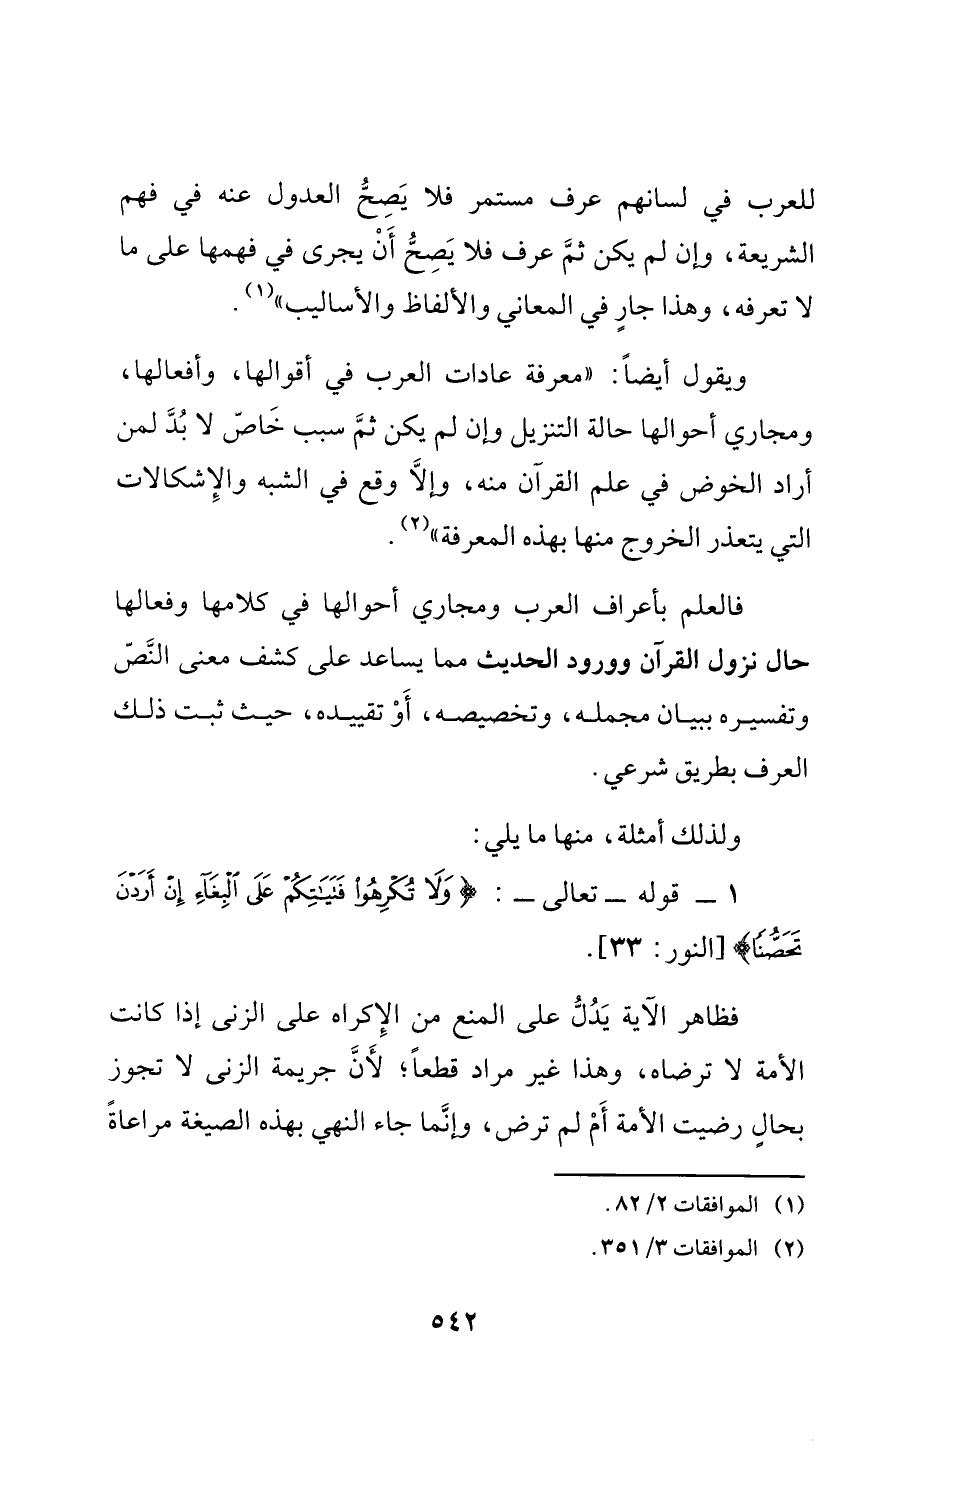 للعرب في لسانهم عرف مستمر فلا يَصِحُّ العدول عنه في فهم
الشريعة، وإن لم يكن ثمَّ عرف فلا يَصِحُّ أَنْ يجرى في فهمها على ما
لا تعرفه، وهذا جارٍ في المعاني والألفاظ والأساليب»(١).
ويقول أيضاً: «معرفة عادات العرب في أقوالها، وأفعالها،
ومجاري أحوالها حالة التنزيل وإن لم يكن ثمَّ سبب خَاصّ لا بُدَّ لمن
أراد الخوض في علم القرآن منه، وإلاَّ وقع في الشبه والإشكالات
التي يتعذر الخروج منها بهذه المعرفة»(٢).
فالعلم بأعراف العرب ومجاري أحوالها في كلامها وفعالها
حال نزول القرآن وورود الحديث مما يساعد على كشف معنى النَّصّ
وتفسيره ببيان مجمله، وتخصيصه، أَوْ تقييده، حيث ثبت ذلك
العرف بطريق شرعي.
ولذلك أمثلة، منها ما يلي:
١ ــ قوله ــ تعالى ــ: ﴿وَلَا تُكْرِهُوا۟ فَتَيَـٰتِكُمْ عَلَى ٱلْبِغَآءِ إِنْ أَرَدْنَ
تَحَصُّنًا﴾ [النور: ٣٣].
فظاهر الآية يَدُلُّ على المنع من الإكراه على الزنى إذا كانت
الأمة لا ترضاه، وهذا غير مراد قطعاً؛ لأَنَّ جريمة الزنى لا تجوز
بحالٍ رضيت الأمة أَمْ لم ترض، وإنَّما جاء النهي بهذه الصيغة مراعاةً
(١) الموافقات ٢/ ٨٢.
(٢) الموافقات ٣/ ٣٥١.
٥٤٢